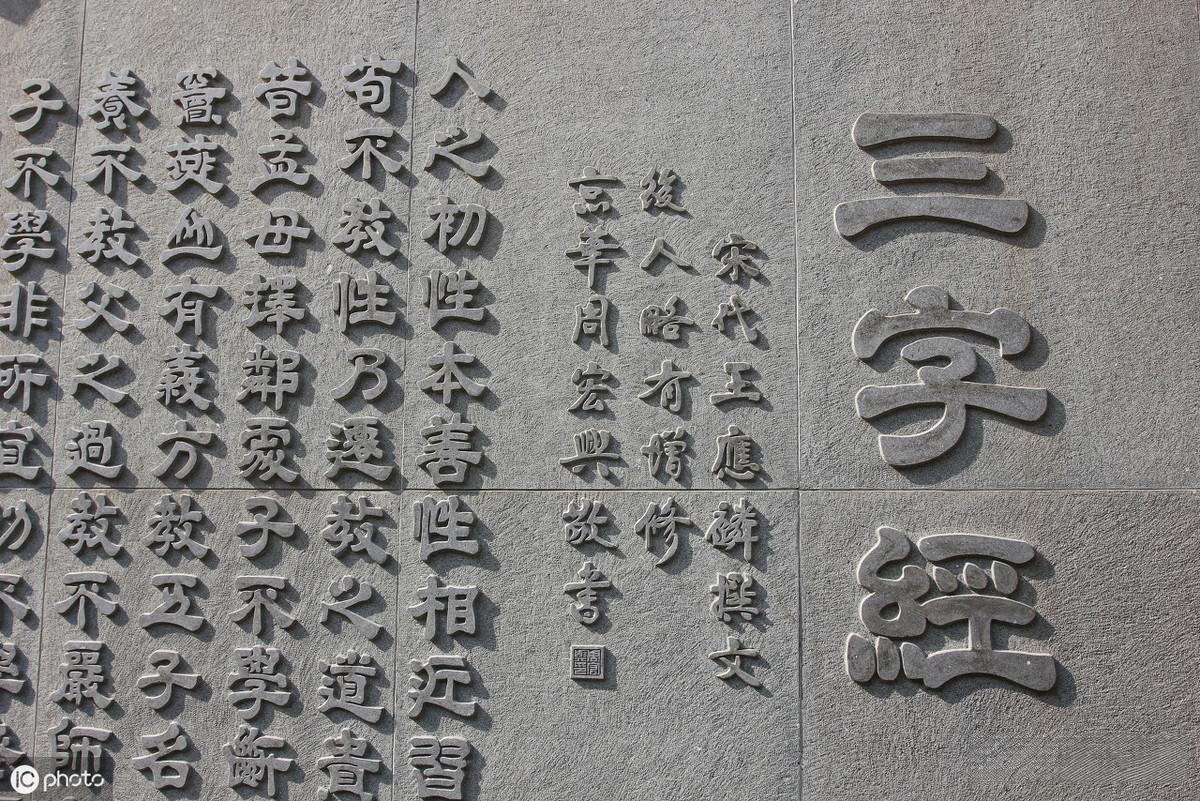 三字經
宋代王應磷撰文
後人略有增修
京華周宏興敬書
人之初性本善性相近習
苟不教性乃遷教之道貴
昔孟母擇鄰處子不學斷
竇燕山有義方教五子名
養不教父之過教不嚴師
子不學非所宜幼不學
iC photo